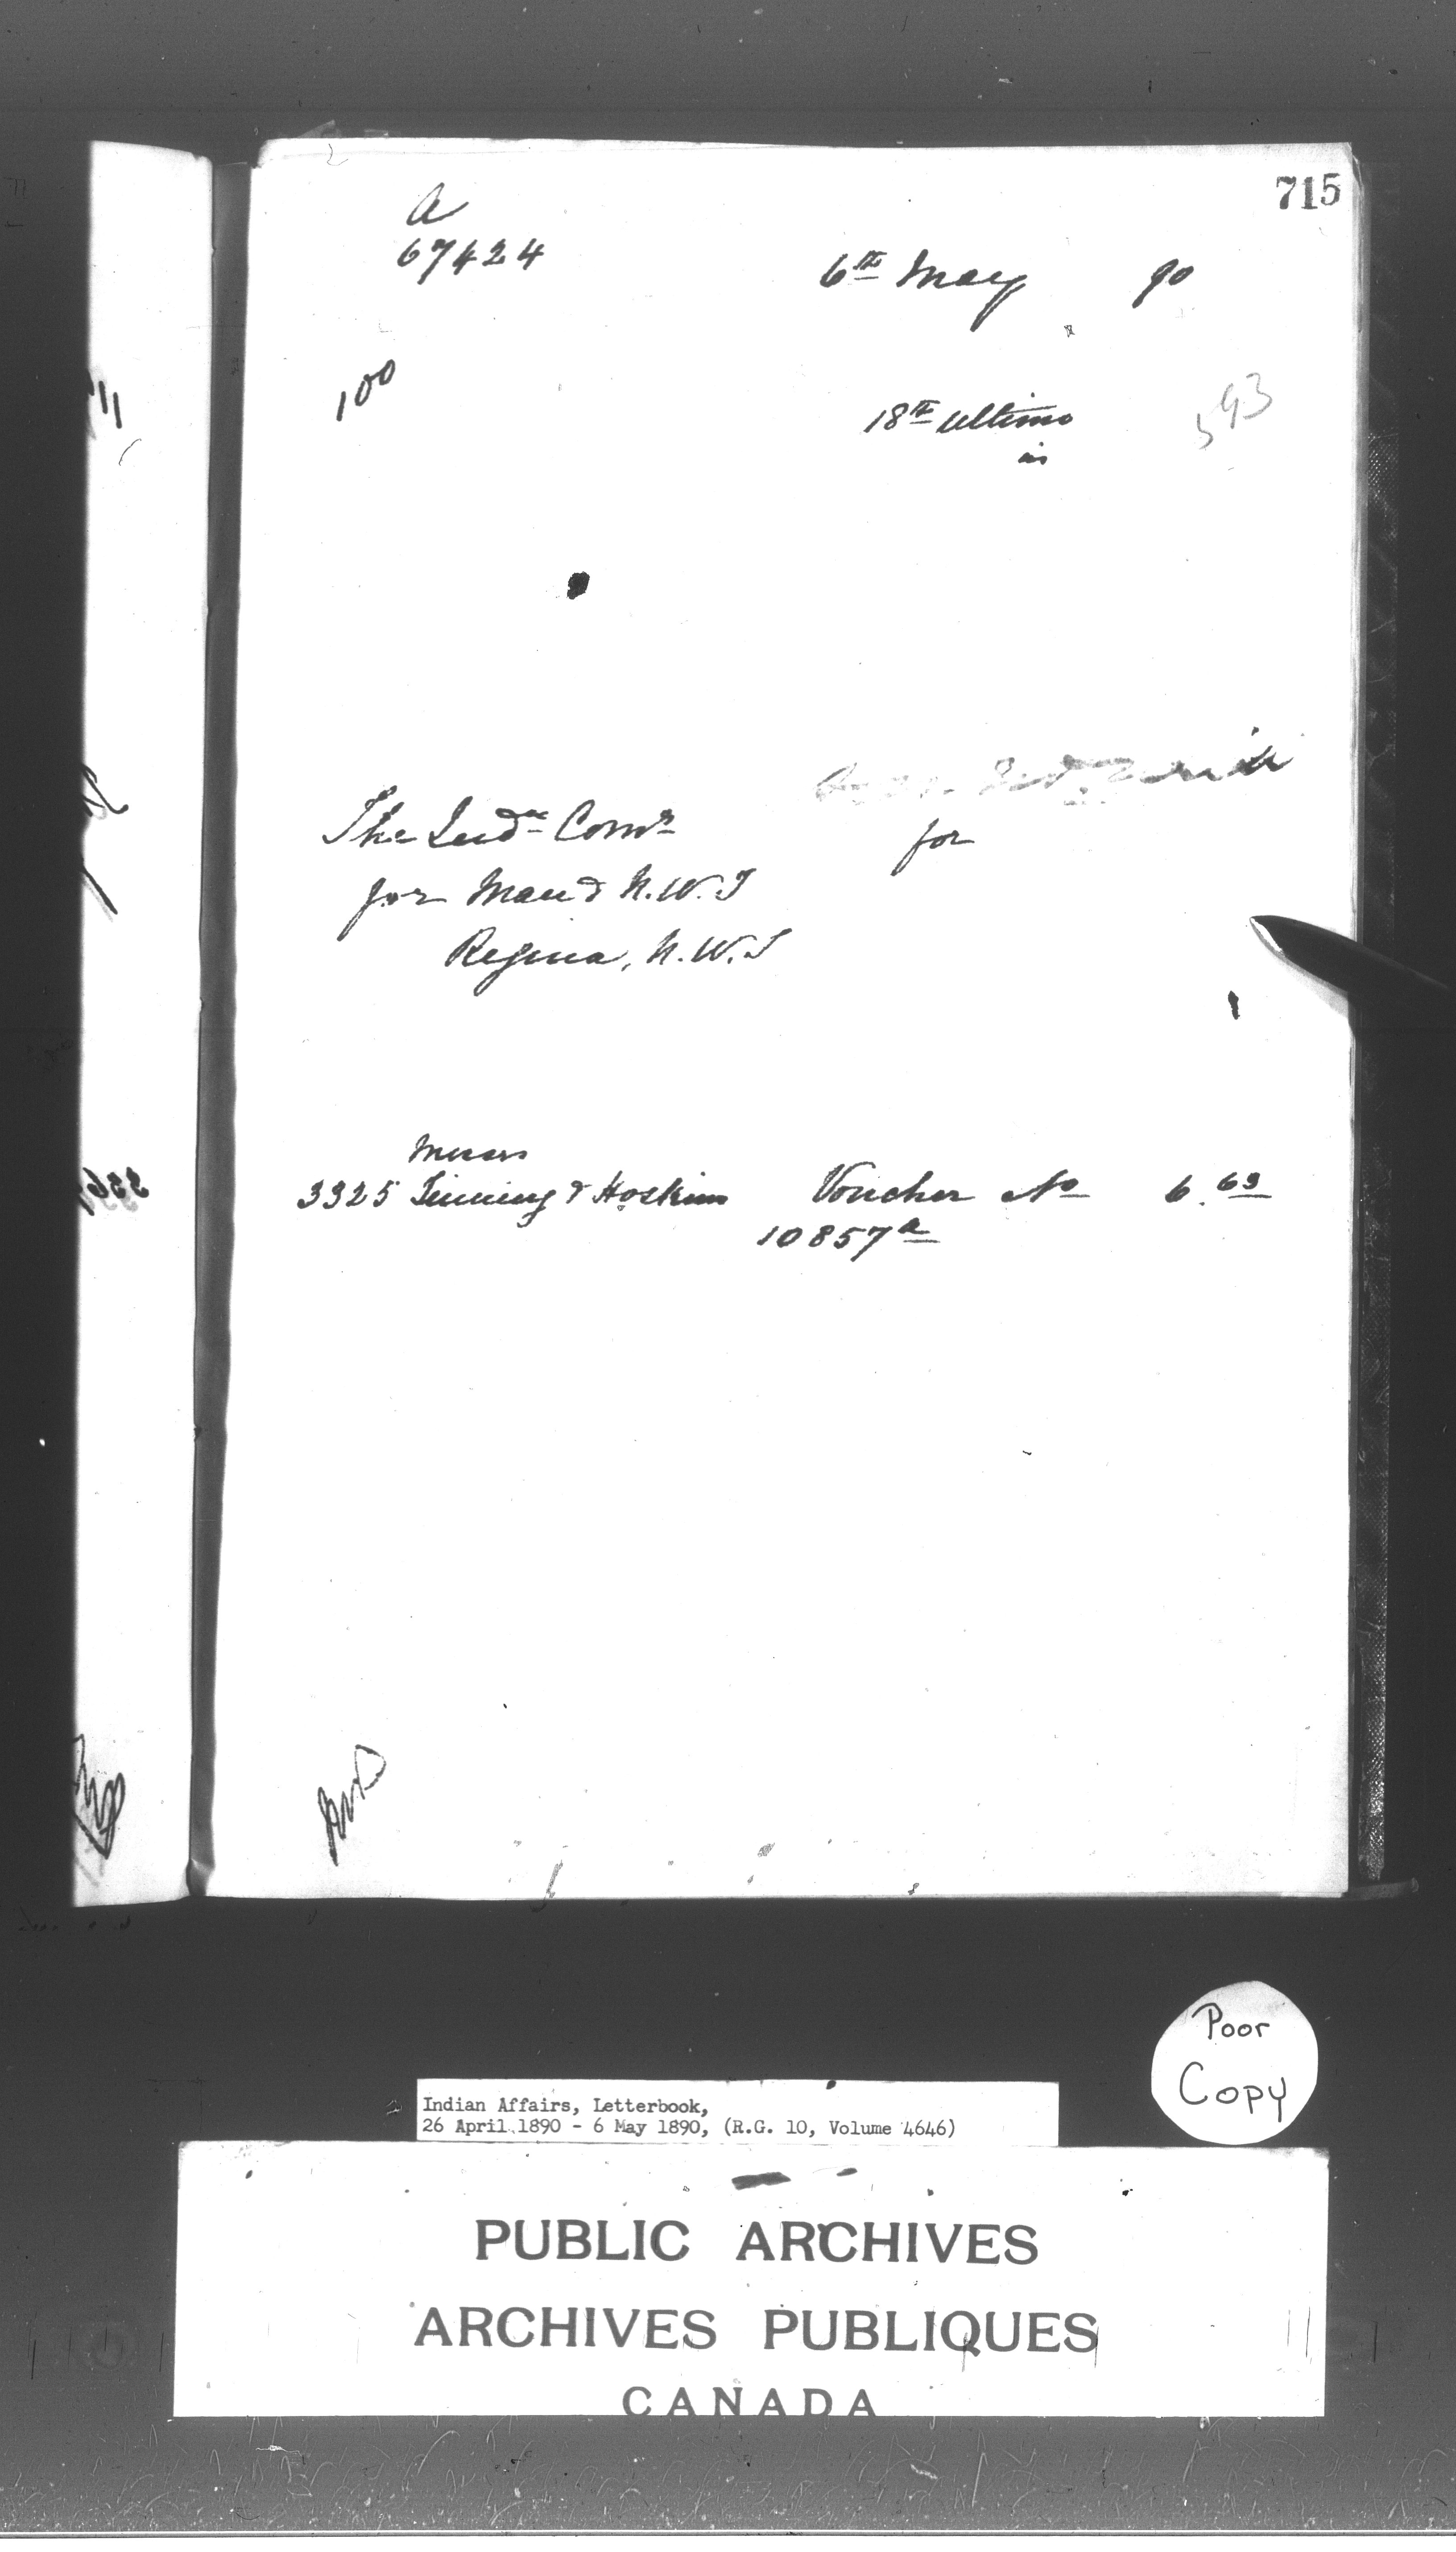 715
A
67424
6th May 90
100
18th ultimo
593
is
The Indn Comr
for
for Man & N.W.T
Regina, N.W.T
Messrs
3325 Tinning & Hoskins Voucher No 6.63
10857a
Poor
Copy
Indian Affairs, Letterbook,
26 April 1890 - 6 May 1890, (R.G. 10, Volume 4646)
PUBLIC ARCHIVES
ARCHIVES PUBLIQUES
CANADA